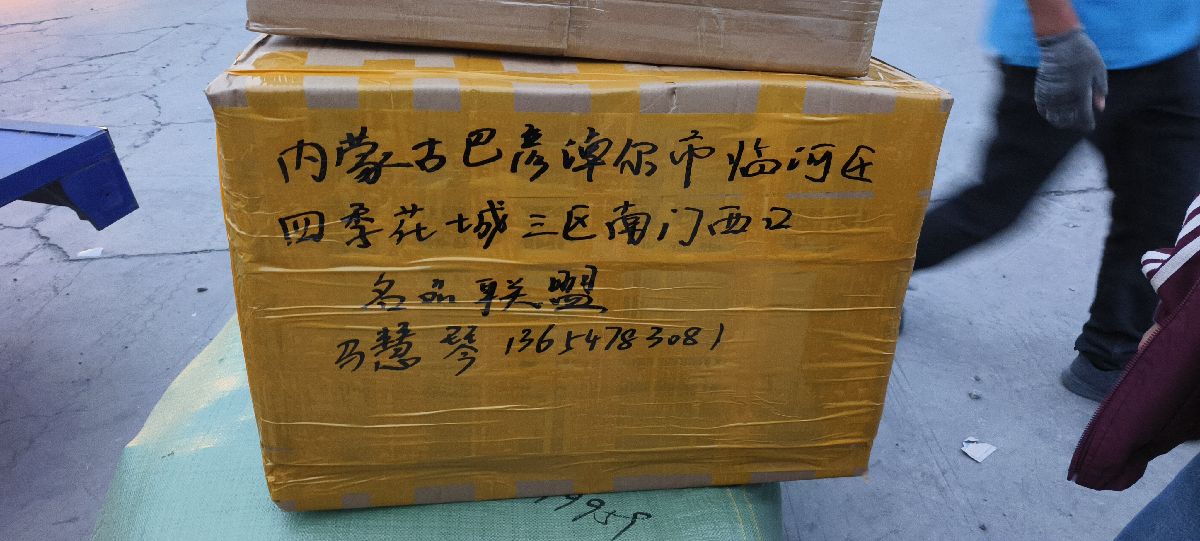 内蒙古巴彦淖尔市临河区
四季花城三区南门西边
名品联盟
马慧琴 13654783081
9959